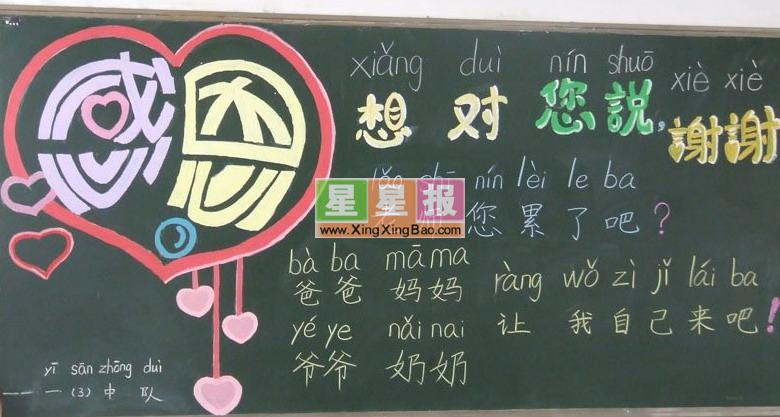 感恩
xiǎng duì nín shuō xiè xiè
想对您説,謝謝
lǎo shī nín lèi le ba
您累了吧?
星星报
www.XingXingBao.com
bà ba māma
爸爸 妈妈
yé ye nǎi nai
爷爷 奶奶
ràng wǒ zì jǐ lái ba
让我自己来吧!
yī sān zhōng duì
一(3)中队